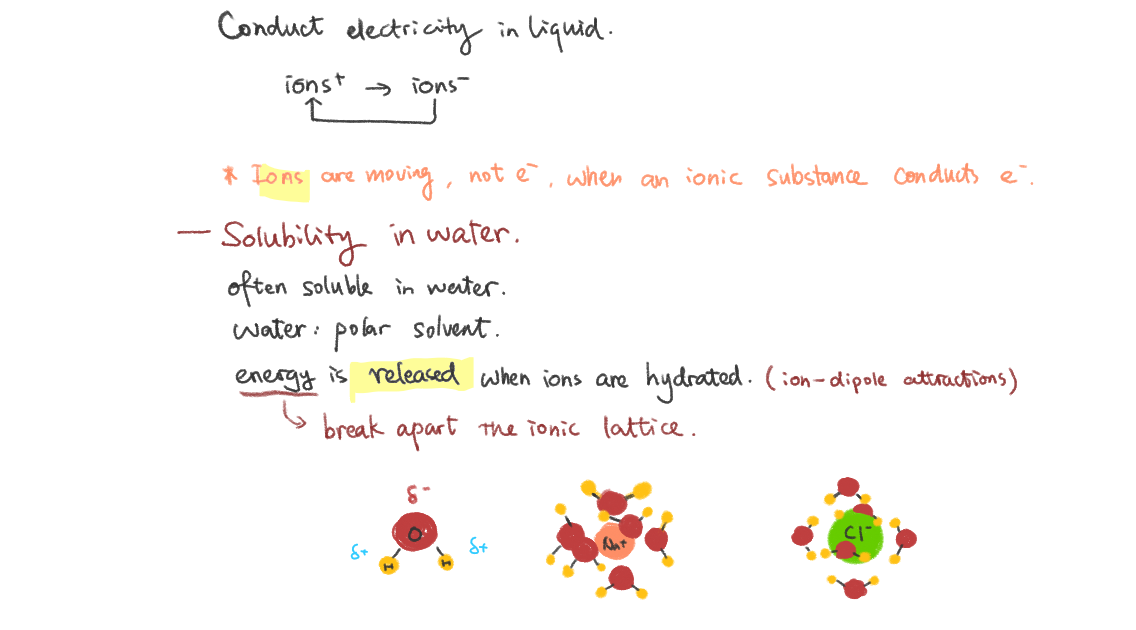 Conduct electricity in liquid.
ions⁺ → ions⁻
* Ions are moving, not e⁻, when an ionic substance conducts e⁻.
— Solubility in water.
often soluble in water.
water: polar solvent.
energy is released when ions are hydrated. (ion-dipole attractions)
↳ break apart the ionic lattice.
δ⁻
O
δ+ δ+
H H
Na+
Cl⁻